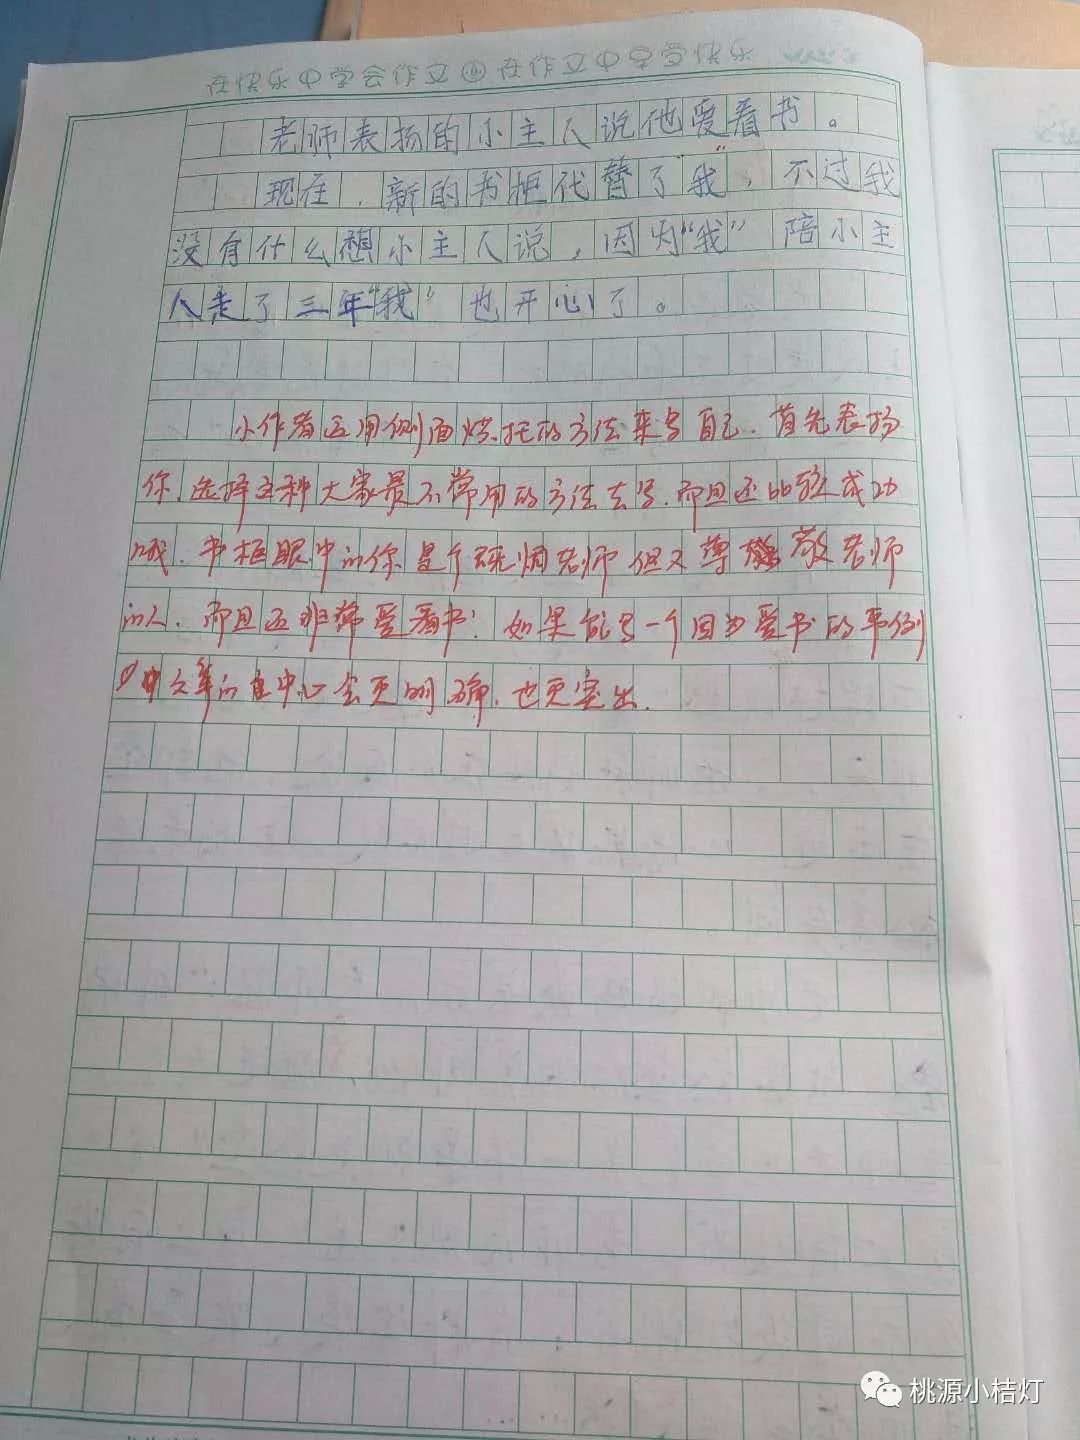 在快乐中学会作文 在作文中享受快乐
老师表扬的小主人说他爱看书。
现在,新的书柜代替了"我",不过我
没有什么想小主人说,因为"我"陪小主
人走了三年"我"也开心了。
小作者运用侧面烘托的方法来写自己.首先表扬
你,选择这种大家最不常用的方法去写.而且还比较成功
哦.书柜眼中的你是个 老师但又尊敬老师
的人.而且还非常爱看书!如果能写一个因为爱书的事例
文章的中心会更明确.也更突出.
桃源小桔灯